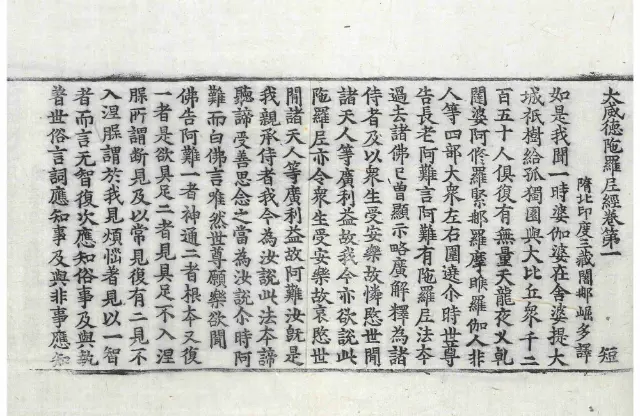 大威德陁羅尼經卷第一　短
隋北印度三藏闍那崛多譯
如是我聞一時婆伽婆在舍婆提大
城祇樹給孤獨園與大比丘衆千二
百五十人俱復有無量天龍夜叉乾
闥婆阿修羅緊那羅摩睺羅伽人非
人等四部大衆左右圍遶尒時世尊
告長老阿難言阿難有陁羅尼法本
過去諸佛已曾顯示略廣解釋爲諸
侍者及以衆生受安樂故憐愍世間
諸天人等廣利益故我今亦欲說此
陁羅尼亦令衆生受安樂故哀愍世
間諸天人等廣利益故阿難汝旣是
我親承侍者我今爲汝說此法本諦
聽諦受善思念之當爲汝說尒時阿
難而白佛言唯然世尊願樂欲聞
佛告阿難一者神通二者根本又復
一者是欲具足二者見具足不入涅
脲所謂斷見及以常見復有二見不
入涅脲謂於我見煩惱者見以一智
者而言无智復次應知俗事及與執
著世俗言詞應知事及與非事應知